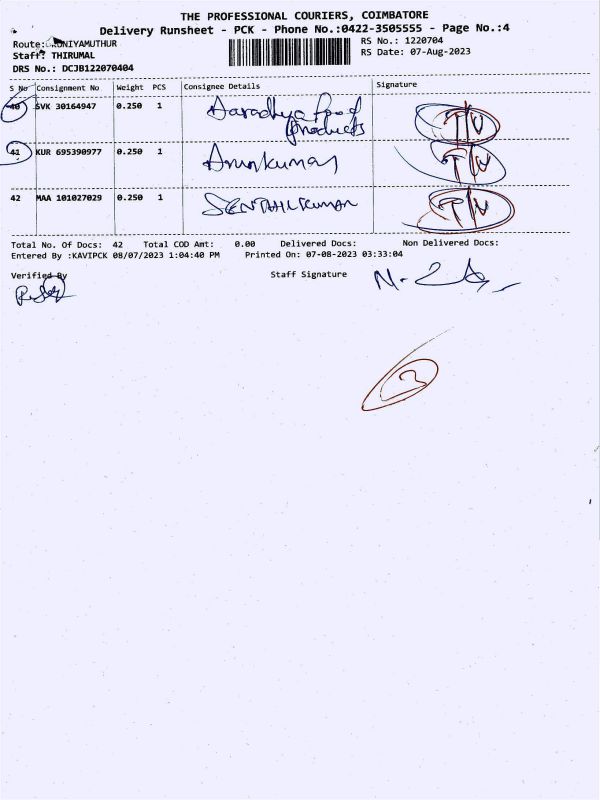 THE PROFESSIONAL COURIERS, COIMBATORE
Delivery Runsheet - PCK - Phone No.:0422-3505555 - Page No.:4
Route: UNIYAMUTHUR RS No.: 1220704
Staff: THIRUMAL RS Date: 07-Aug-2023
DRS No.: DCJB122070404
S No Consignment No Weight PCS Consignee Details Signature
40 SVK 30164947 0.250 1 Aaradhya Food
Products
41 KUR 695390977 0.250 1 Arunkumar
42 MAA 101027029 0.250 1 SENTHILKUMAR
Total No. Of Docs: 42 Total COD Amt: 0.00 Delivered Docs: Non Delivered Docs:
Entered By :KAVIPCK 08/07/2023 1:04:40 PM Printed On: 07-08-2023 03:33:04
Verified By Staff Signature
3